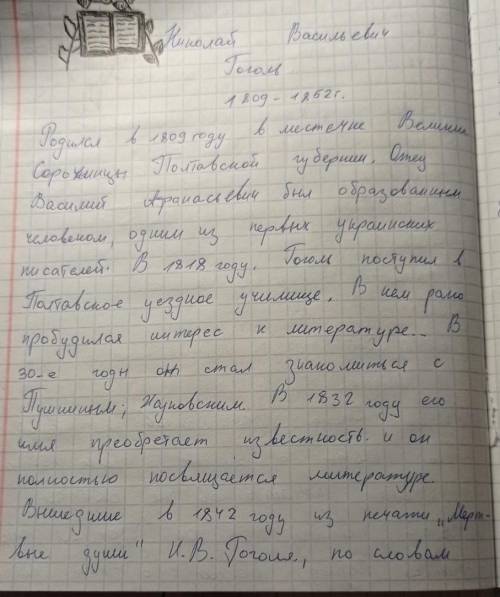 Николай Васильевич
Гоголь
1809-1852г.
Родился в 1809 году в местечке Великие
Сорочинцы Полтавской губернии. Отец
Василий Афанасьевич был образованным
человеком, одним из первых украинских
писателей. В 1818 году. Гоголь поступил в
Полтавское уездное училище. В нем рано
пробудился интерес к литературе.. В
30-е годы он стал знакомиться с
Пушкиным; Жуковским. В 1832 году его
имя преобретает известность и он
полностью посвящается литературе.
Вышедшие в 1842 году из печати „Мерт-
вые души" Н.В. Гоголя, по словам